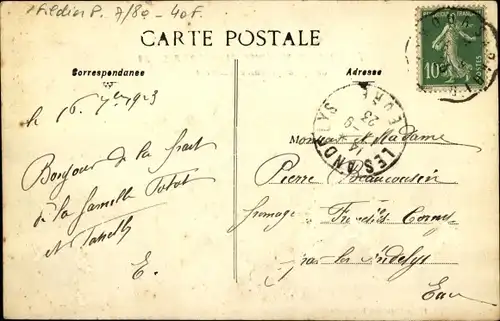 7/8a - 40F.
CARTE POSTALE
Correspondance
Adresse
10
POSTES
le 16 7bre 1923
LES ANDELYS
EURE
14 - 9
23
Bonjour de la part
de la famille Totot
et
E.
Monsieur et Madame
Pierre Beaucousin
fromage
Corny
par les Andelys
Eure